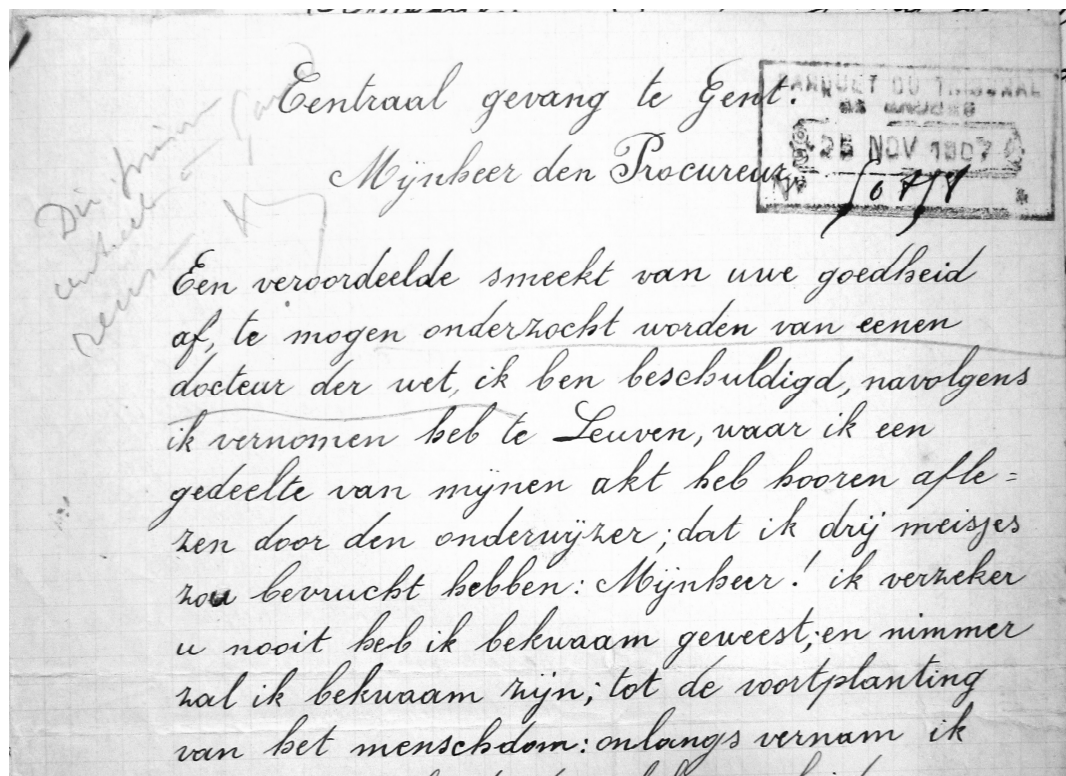 Centraal gevang te Gent.
PARQUET DU TRIBUNAL
25 NOV 1907
Mijnheer den Procureur,
Een veroordeelde smeekt van uwe goedheid
af, te mogen onderzocht worden van eenen
docteur der wet, ik ben beschuldigd, navolgens
ik vernomen heb te Leuven, waar ik een
gedeelte van mijnen akt heb hooren afle=
zen door den onderwijzer; dat ik drij meisjes
zou bevrucht hebben: Mijnheer! ik verzeker
u nooit heb ik bekwaam geweest; en nimmer
zal ik bekwaam zijn; tot de voortplanting
van het menschdom: onlangs vernam ik